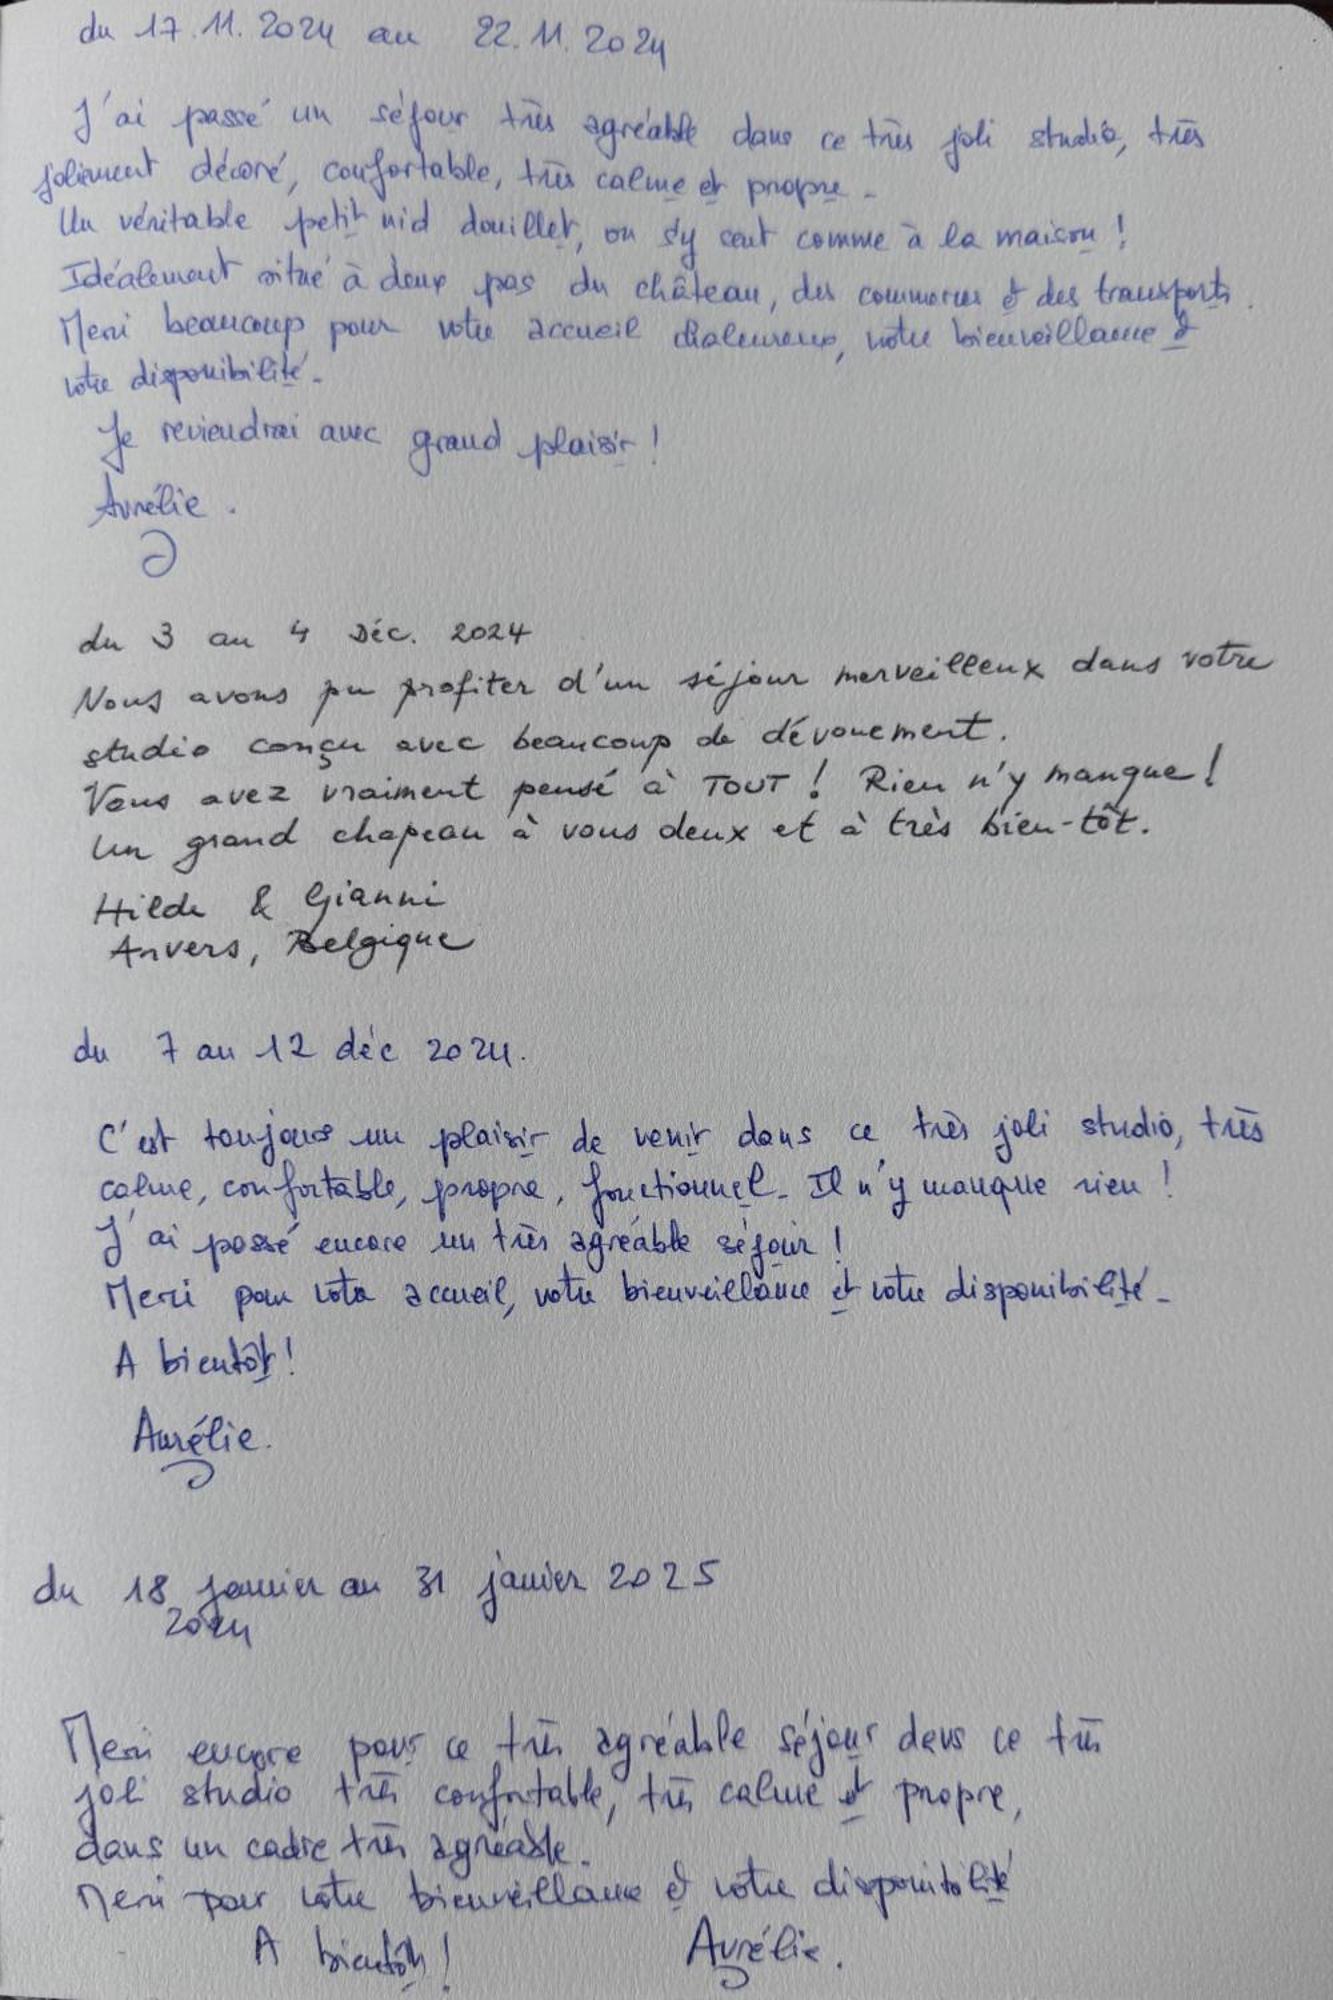 du 17.11.2024 au 22.11.2024
J'ai passé un séjour très agréable dans ce très joli studio, très
joliement décoré, confortable, très calme et propre.
Un véritable petit nid douillet, on s'y sent comme à la maison !
Idéalement situé à deux pas du château, des commerces et des transports.
Merci beaucoup pour votre accueil chaleureux, votre bienveillance et
votre disponibilité.
Je reviendrai avec grand plaisir !
Aurélie.
du 3 au 4 Déc. 2024
Nous avons pu profiter d'un séjour merveilleux dans votre
studio conçu avec beaucoup de dévouement.
Vous avez vraiment pensé à TOUT ! Rien n'y manque !
Un grand chapeau à vous deux et à très bien-tôt.
Hilde & Gianni
Anvers, Belgique
du 7 au 12 déc 2024.
C'est toujours un plaisir de venir dans ce très joli studio, très
calme, confortable, propre, fonctionnel. Il n'y manque rien !
J'ai passé encore un très agréable séjour !
Merci pour votre accueil, votre bienveillance et votre disponibilité.
A bientôt !
Aurélie.
du 18 janvier au 31 janvier 2025
2024
Merci encore pour ce très agréable séjour dans ce très
joli studio très confortable, très calme et propre,
dans un cadre très agréable.
Merci pour votre bienveillance et votre disponibilité
A bientôt ! Aurélie.